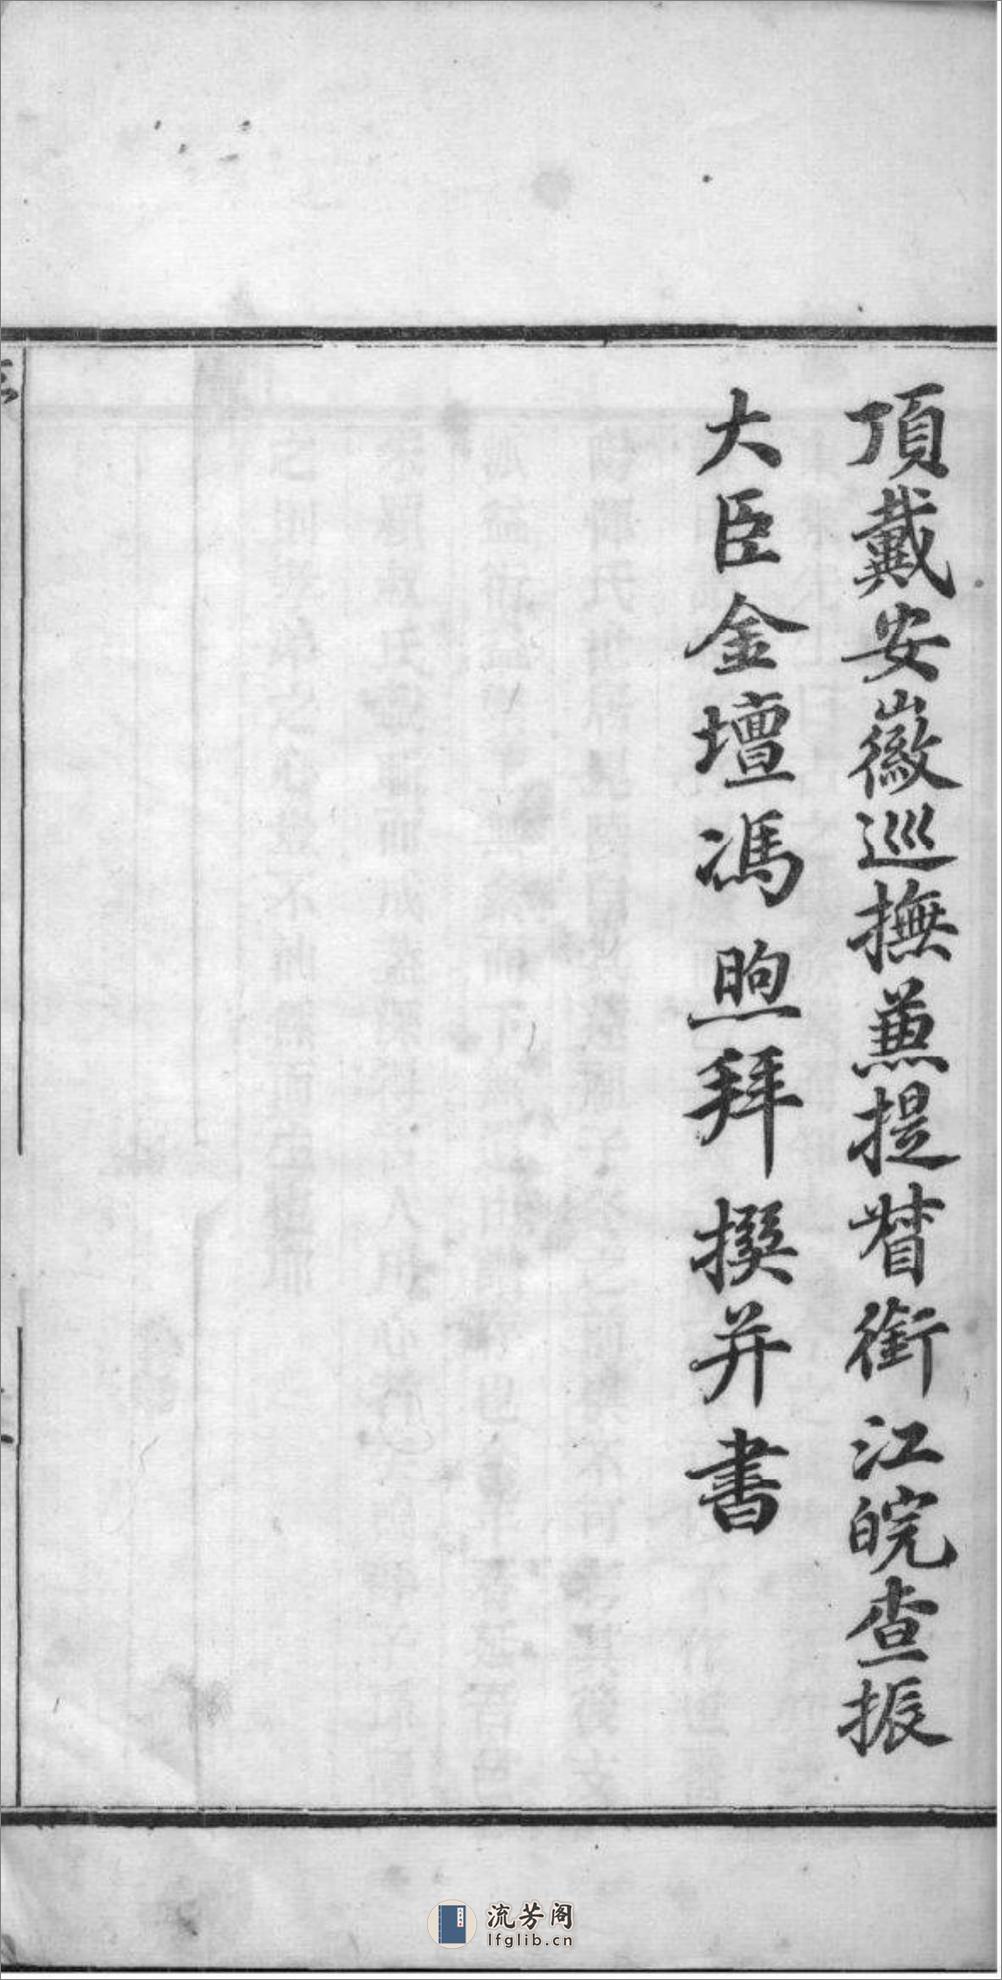 頂戴安徽巡撫兼提督銜江皖查振
大臣金壇馮煦拜撰并書
流芳阁
lfglib.cn